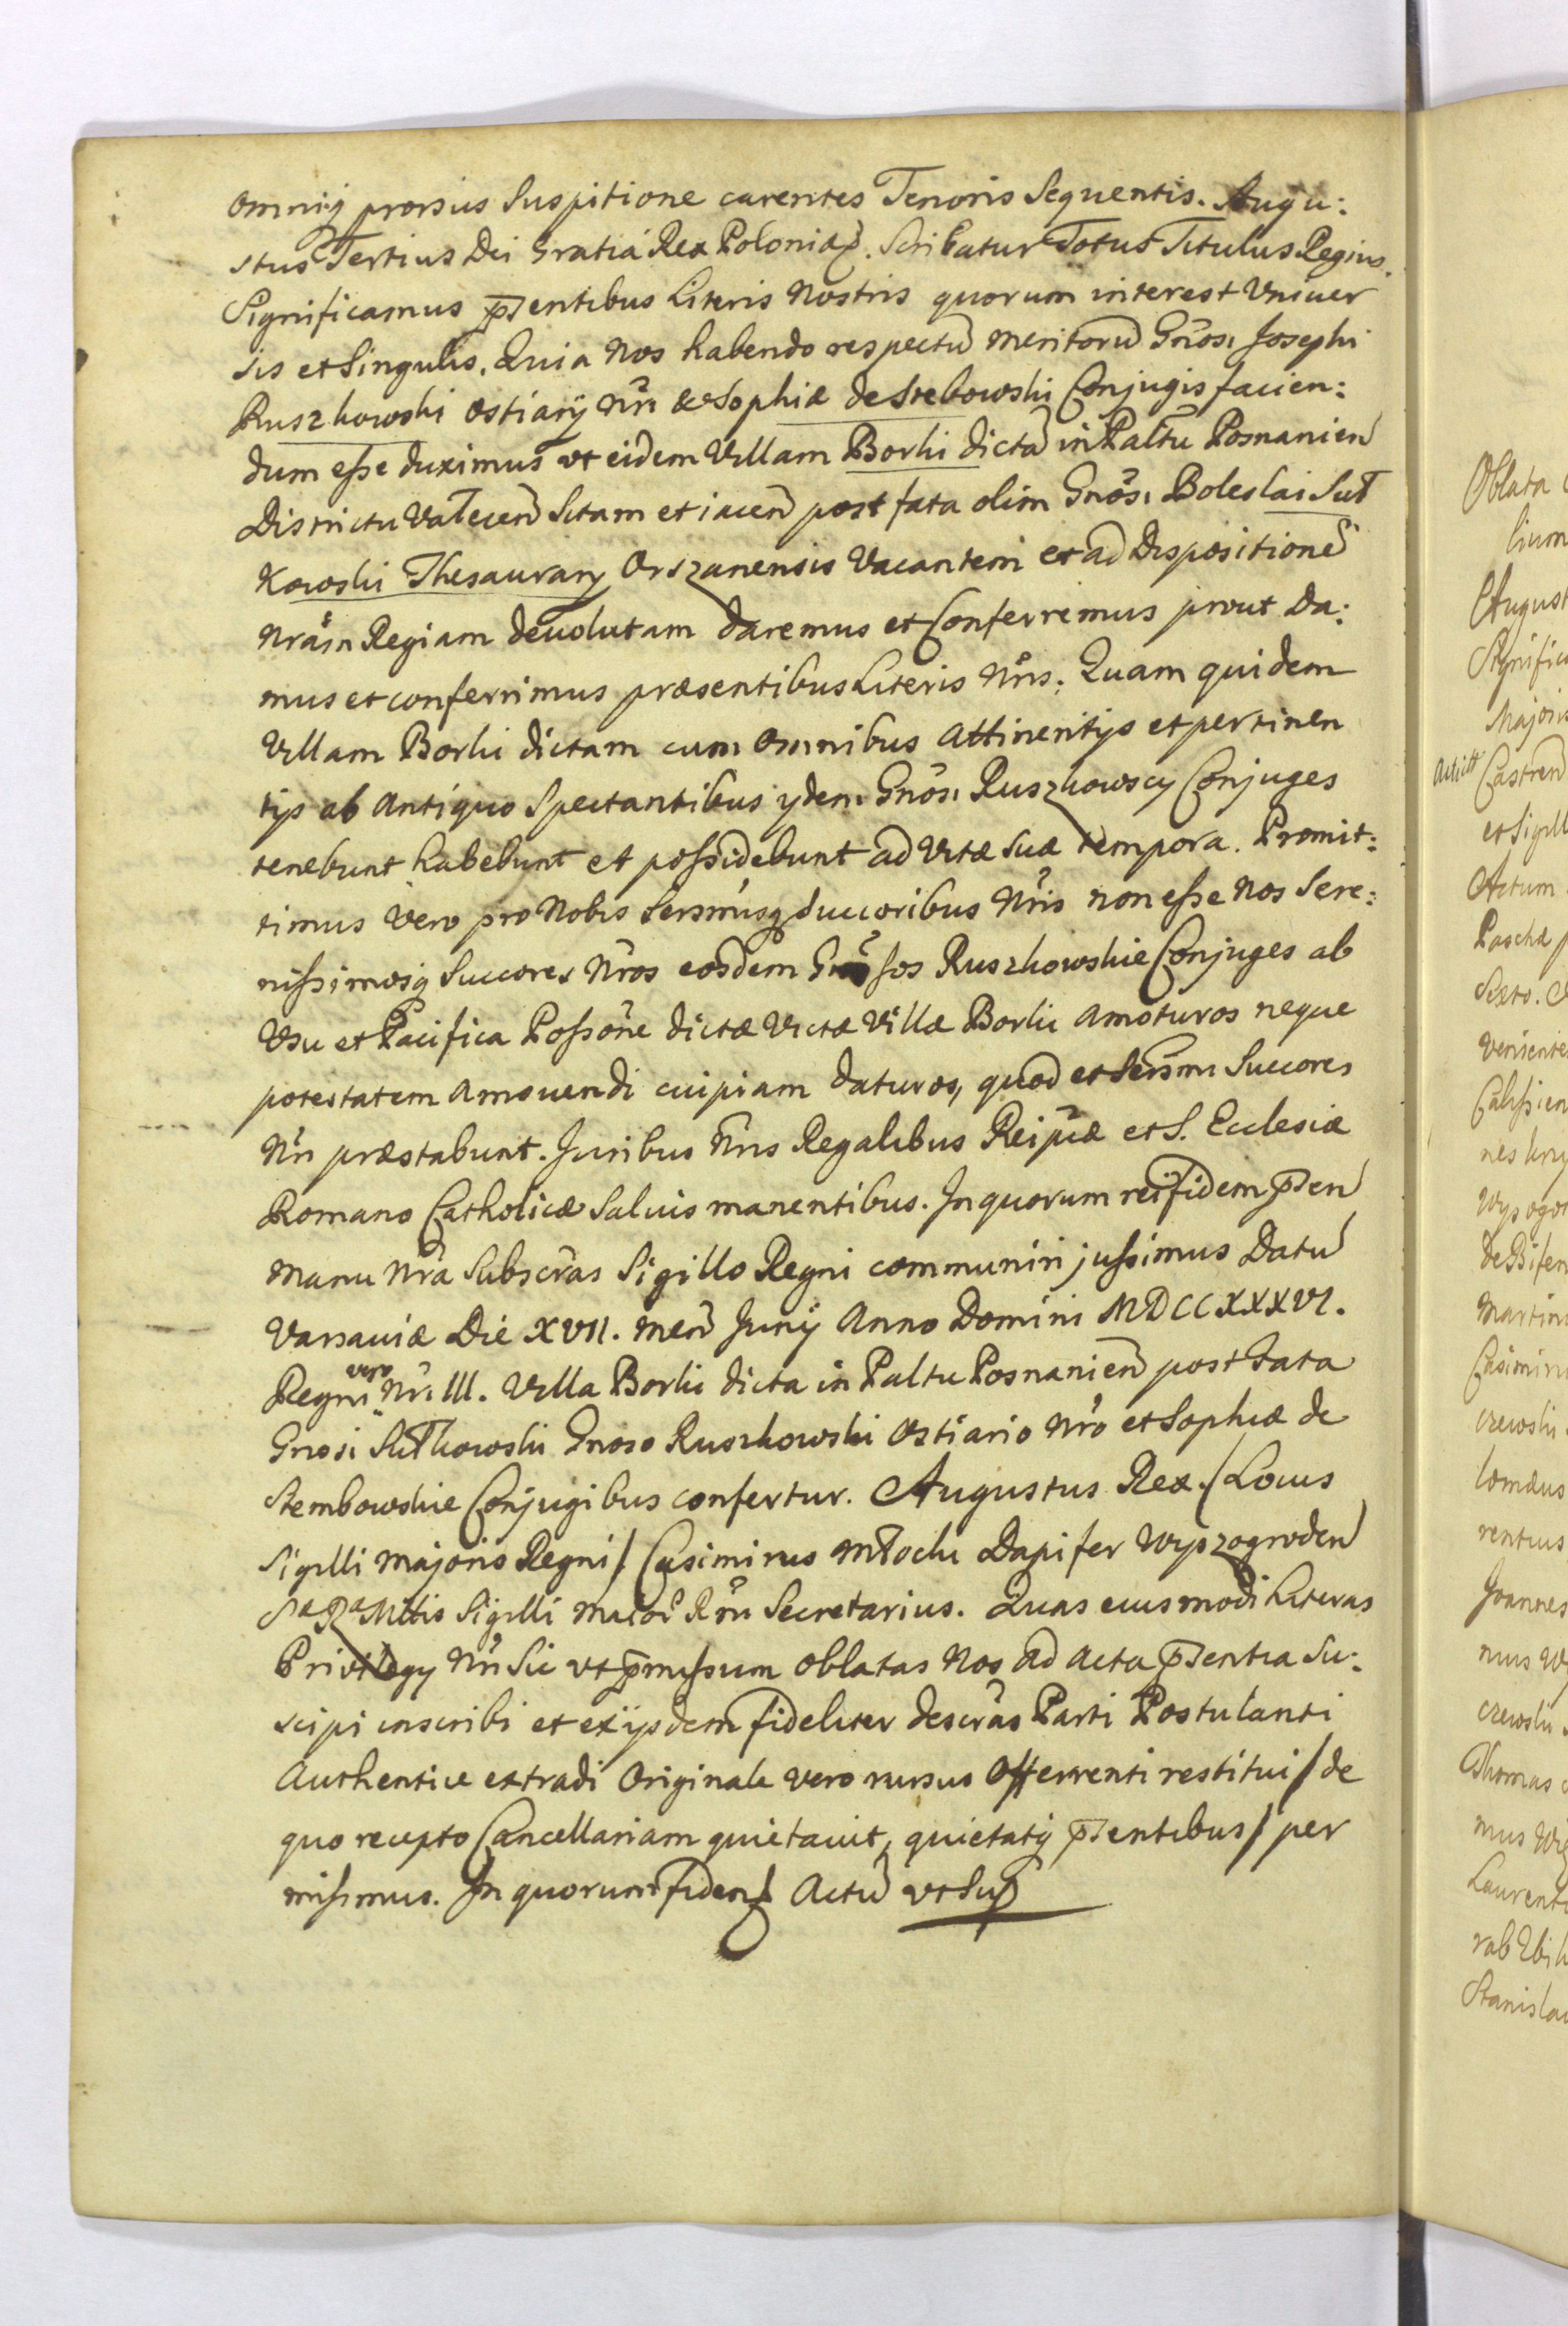 omniq prorsus Suspitione carentes Tenoris Sequentis. Augu:
stus Tertius Dei Gratia Rex Poloniæ. Scribatur Totus Titulus Regius.
Significamus pntibus Literis Nostris quorum interest Vniuer
sis et Singulis. Quia Nos habendo respectu meritoru Gnosi Josephi
Ruszkowski Ostiarij Nri & Sophiæ de Strebowski Conjugis facien:
dum esse duximus vt eidem Villam Borki dicta in Paltu Posnanien
Districtu Valecen Sitam et iacen post fata olim Gnosi Boleslai Sut
kowski Thesaurary Orszanensis Vacantem et ad Dispositione
Nram Regiam deuolutam daremus et Conferremus prout Da:
mus et conferrimus præsentibus Literis Nris. Quam quidem
Villam Borki dictam cum omnibus Attinentijs et pertinen
tijs ab Antiquo Spectantibus ydem Gnosi Ruszkowscy Conjuges
tenebunt habebunt et possidebunt ad Vitæ Suæ tempora. Promit:
timus Vero pro Nobis Sersmisq Succoribus Nris non esse Nos Sere:
nissimosq Succores Nros eosdem Gnosos Ruszkowskie Conjuges ab
Vsu et Pacifica Possone dictæ Victæ Villæ Borki Amoturos neque
potestatem Amouendi cuipiam daturos, quod et Sersmi Succores
Nri præstabunt. Juribus Nris Regalibus Reipcæ et S. Ecclesiæ
Romano Catholicæ Saluis manentibus. In quorum rei fidem pnten
Manu Nra Subscras Sigillo Regni communiri jussimus Datu
Varsauiæ Die XVII. Men Junij Anno Domini MDCCXXXVI.
Regni vero Nri III. Villa Borki dicta in Paltu Posnanien post Fata
Gnosi Sutkowski Gnoso Ruszkowski Ostiario Nro et Sophiæ de
Stembowskie Conjugibus confertur. Augustus Rex. /Locus
Sigilli majoris Regni/ Casimirus Młocki Dapifer Wyszogroden
Sæ Ræ Mttis Sigilli Maior Rni Secretarius. Quas eiusmodi Literas
Privilegy Nri Sic vt pmissum oblatas Nos ad Acta pntia Su:
scipi inscribi et ex ijsdem fideliter descras Parti Postulanti
Authentice extradi Originale vero rursus Offerrenti restitui / de
quo recepto Cancellariam quietauit, quietatq pntibus / per
misimus. In quorum fidem Actu vt Sup
Oblata
lium
August
Significa
Majoris
Acticat Castren
et Sigill
Actum
Paschæ
Sexto.
Venient
Calissien
Martin
Casimiru
czewski
Joannes
czewski
Thomas
Laurent
Stanisla